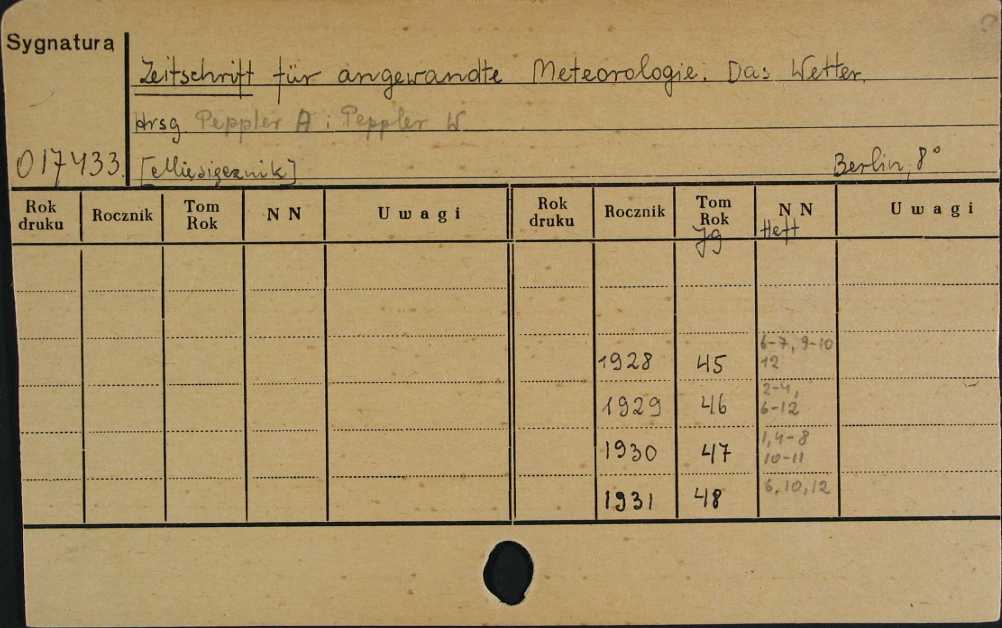 Sygnatura
Zeitschrift für angewandte Meteorologie. Das Wetter.
Hrsg Peppler A i Peppler W
017433. [Miesięcznik] Berlin, 8°
Rok druku Rocznik Tom Rok N N Uwagi Rok druku Rocznik Tom Rok N N Uwagi
Jg Heft
1928 45 6-7, 9-10 12
1929 46 2-4, 6-12
1930 47 1,4-8 10-11
1931 48 6,10,12